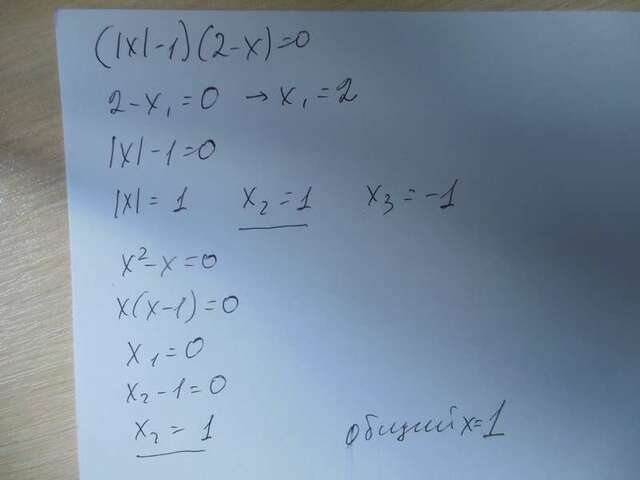 (|x|-1)(2-x)=0
2-x₁=0 → x₁=2
|x|-1=0
|x|=1 x₂=1 x₃=-1
x²-x=0
x(x-1)=0
x₁=0
x₂-1=0
x₂=1 общий x=1